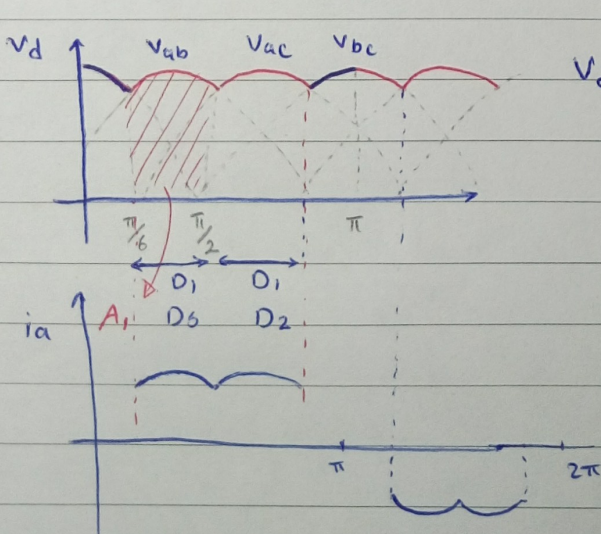 Vd Vab Vac Vbc
π/6 π/2 π
D₁ D₁
A₁ D6 D2
ia
π 2π